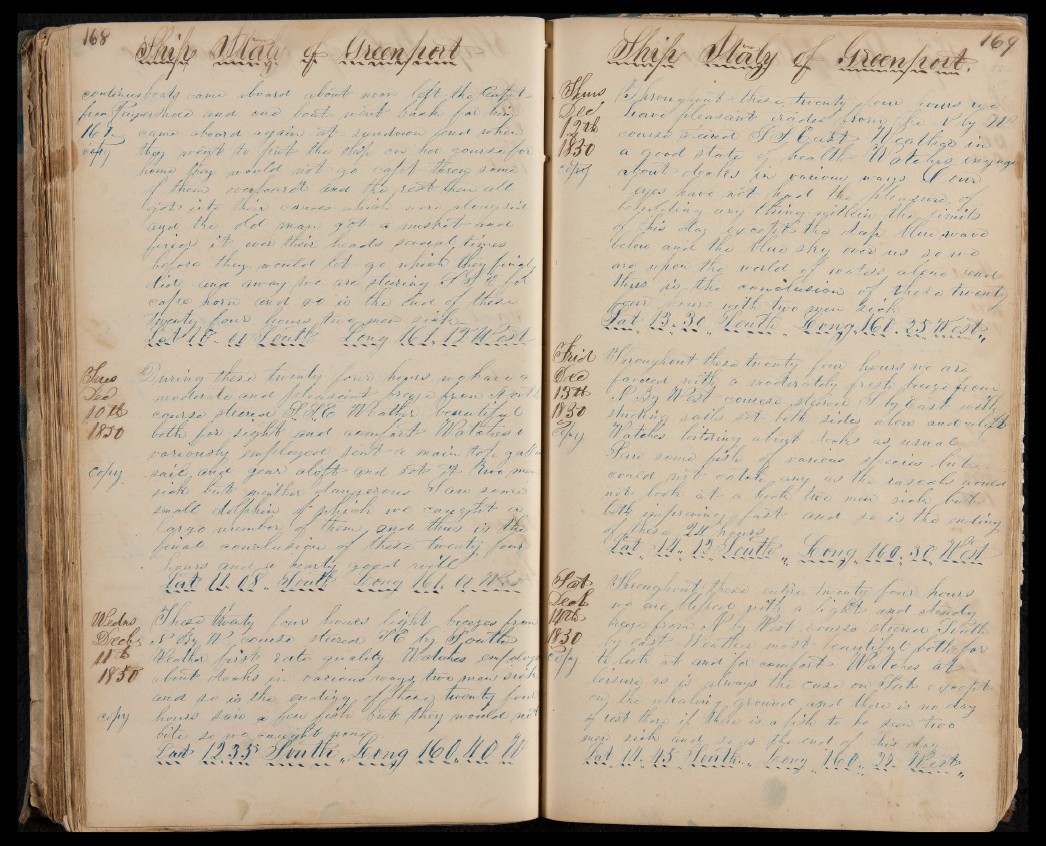 168
Ship Italy of Greenport
continues boats came aboard about noon left the Capt
from ashore and one boat went back for him
169 came aboard again at sundown and when
copy they went to put the ship on her course for
home they would not go Capt threw some
of them overboard and the rest then all
got into their canoes which were alongside
and the old man got a musket and
fired it over their heads several times
before they would let go which they finaly
did and away we are stearing S S E for
cape horn and so is the end of these
twenty four hours two men sick
Lat 10.01 South Long 161.12 West
Tues
Dec
10th
1850
copy
During these twenty four hours we have a
moderate and pleasant breeze from North
course steered S S E Weather beautiful
both for sight and comfort Watches
variously employed sent a main top gallant
sail and gear aloft and set it two men
sick but neither dangerous saw some
small dolphin of which we caught a
large number of them and thus is the
final conclusion of these twenty four
hours and a hearty good will
Lat 11.08 South Long 161.01 West
Wedns
Dec
11th
1850
copy
These twenty four hours light breezes from
N By W course steered S E by South
Weather first rate quality Watches employed
about decks in various ways two men sick
and so is the ending of these twenty four
hours saw a few fish but they would not
bite so we caught none
Lat 12.35 South Long 160.40 W
169
Ship Italy of Greenport.
Thurs
Dec
12th
1850
copy
Throughout these twenty four hours we
have pleasant trades from the N by W
course steered S S East Weather in
a good state of health Watches engaged
about decks in various ways Our
eyes have not had the pleasure of
beholding any thing within the limits
of this day except the deep blue wave
below and the blue sky over us so we
are upon the world of water alone and
thus is the conclusion of these twenty
four hours with two men sick
Lat 13.30 South Long 160.25 West
Frid
Dec
13th
1850
copy
Throughout these twenty four hours we are
favored with a moderately fresh breeze from
N By West course steered S by East with
studding sails set both sides alow and aloft
Watches loitering about decks as usual
Saw some fish of various species but
could not catch any as the rascals would
not look at a hook two men sick but
both improving fast and so is the ending
of these 24 hours
Lat 14.12 South Long 160.30 West
Sat
Dec
14th
1850
copy
Throughout these entire twenty four hours
we are blessed with a light and steady
breeze from N by West course steered South
by east Weather most beautiful both for
to look at and for comfort Watches at
leisure as is always the case on Sat except
on the whaling ground and there is no day
of rest there if there is a fish to be seen two
men sick and so is the end of this day
Lat 14.45 South Long 160.22 West